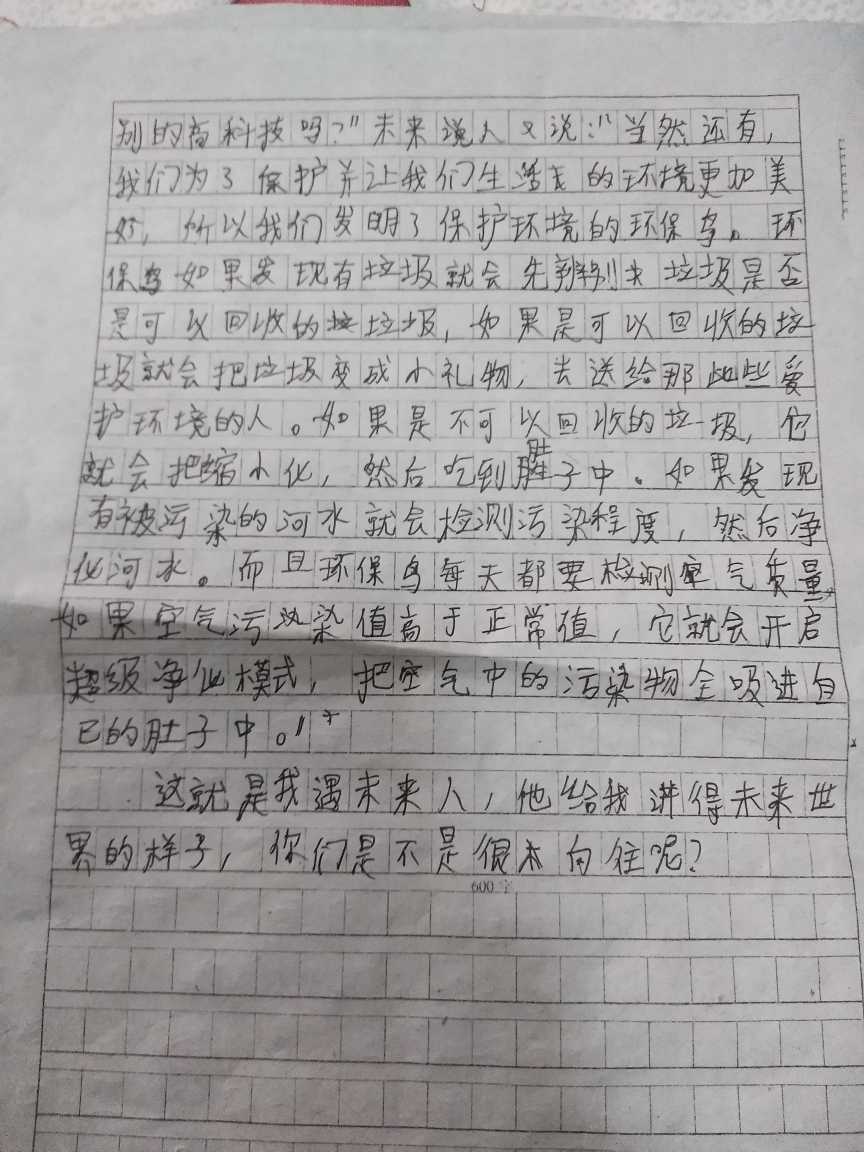 别的高科技吗?"未来人又说:"当然还有,
我们为了保护并让我们生活的环境更加美
好,所以我们发明了保护环境的环保鸟。环
保鸟如果发现有垃圾就会先辨别垃圾是否
是可以回收的垃圾,如果是可以回收的垃
圾就会把垃圾变成小礼物,去送给那些爱
护环境的人。如果是不可以回收的垃圾,它
就会把缩小化,然后吃到肚子中。如果发现
有被污染的河水就会检测污染程度,然后净
化河水。而且环保鸟每天都要检测空气质量,
如果空气污染值高于正常值,它就会开启
超级净化模式,把空气中的污染物全吸进自
己的肚子中。"
这就是我遇未来人,他给我讲得未来世
界的样子,你们是不是很向往呢?
600字